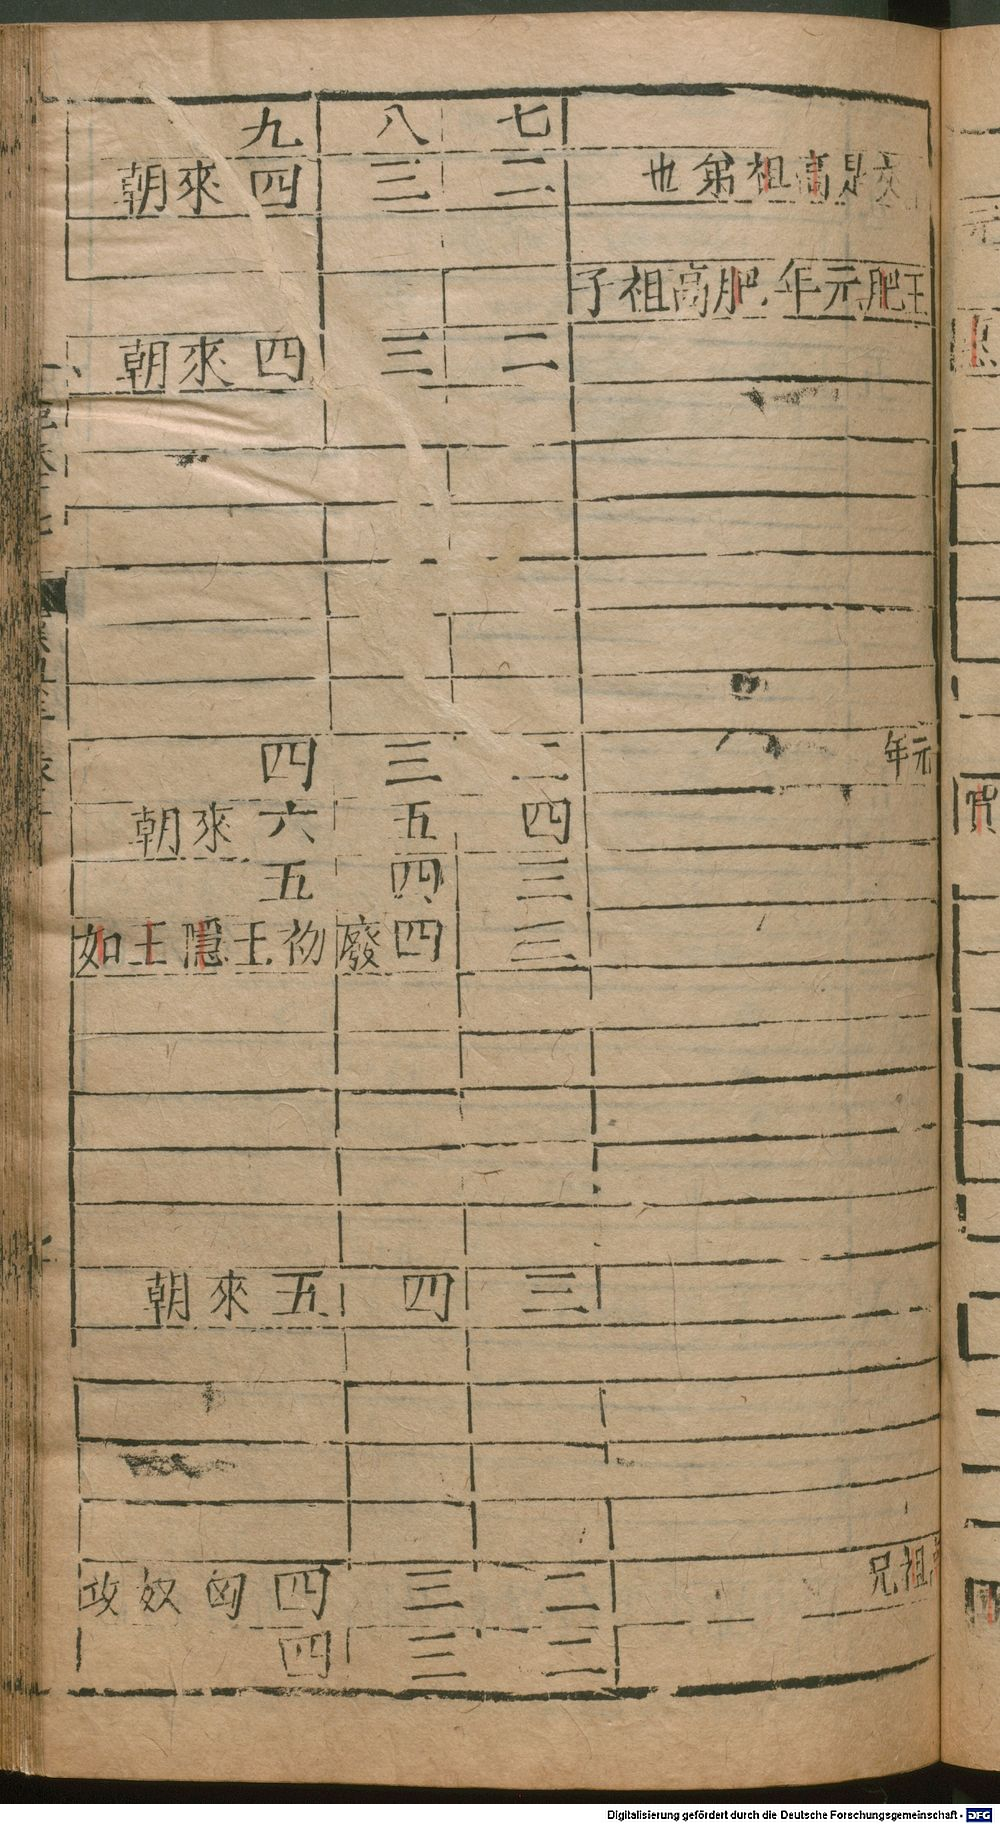 交是高祖弟也
王肥元年肥高祖子
元年
祖兄
七
二
二
二
四
三
三
三
二
二
八
三
三
三
五
四
四廢
四
三
三
九
四來朝
四來朝
四
六來朝
五
初王隱王如
五來朝
四匈奴攻
四
Digitalisierung gefördert durch die Deutsche Forschungsgemeinschaft - DFG